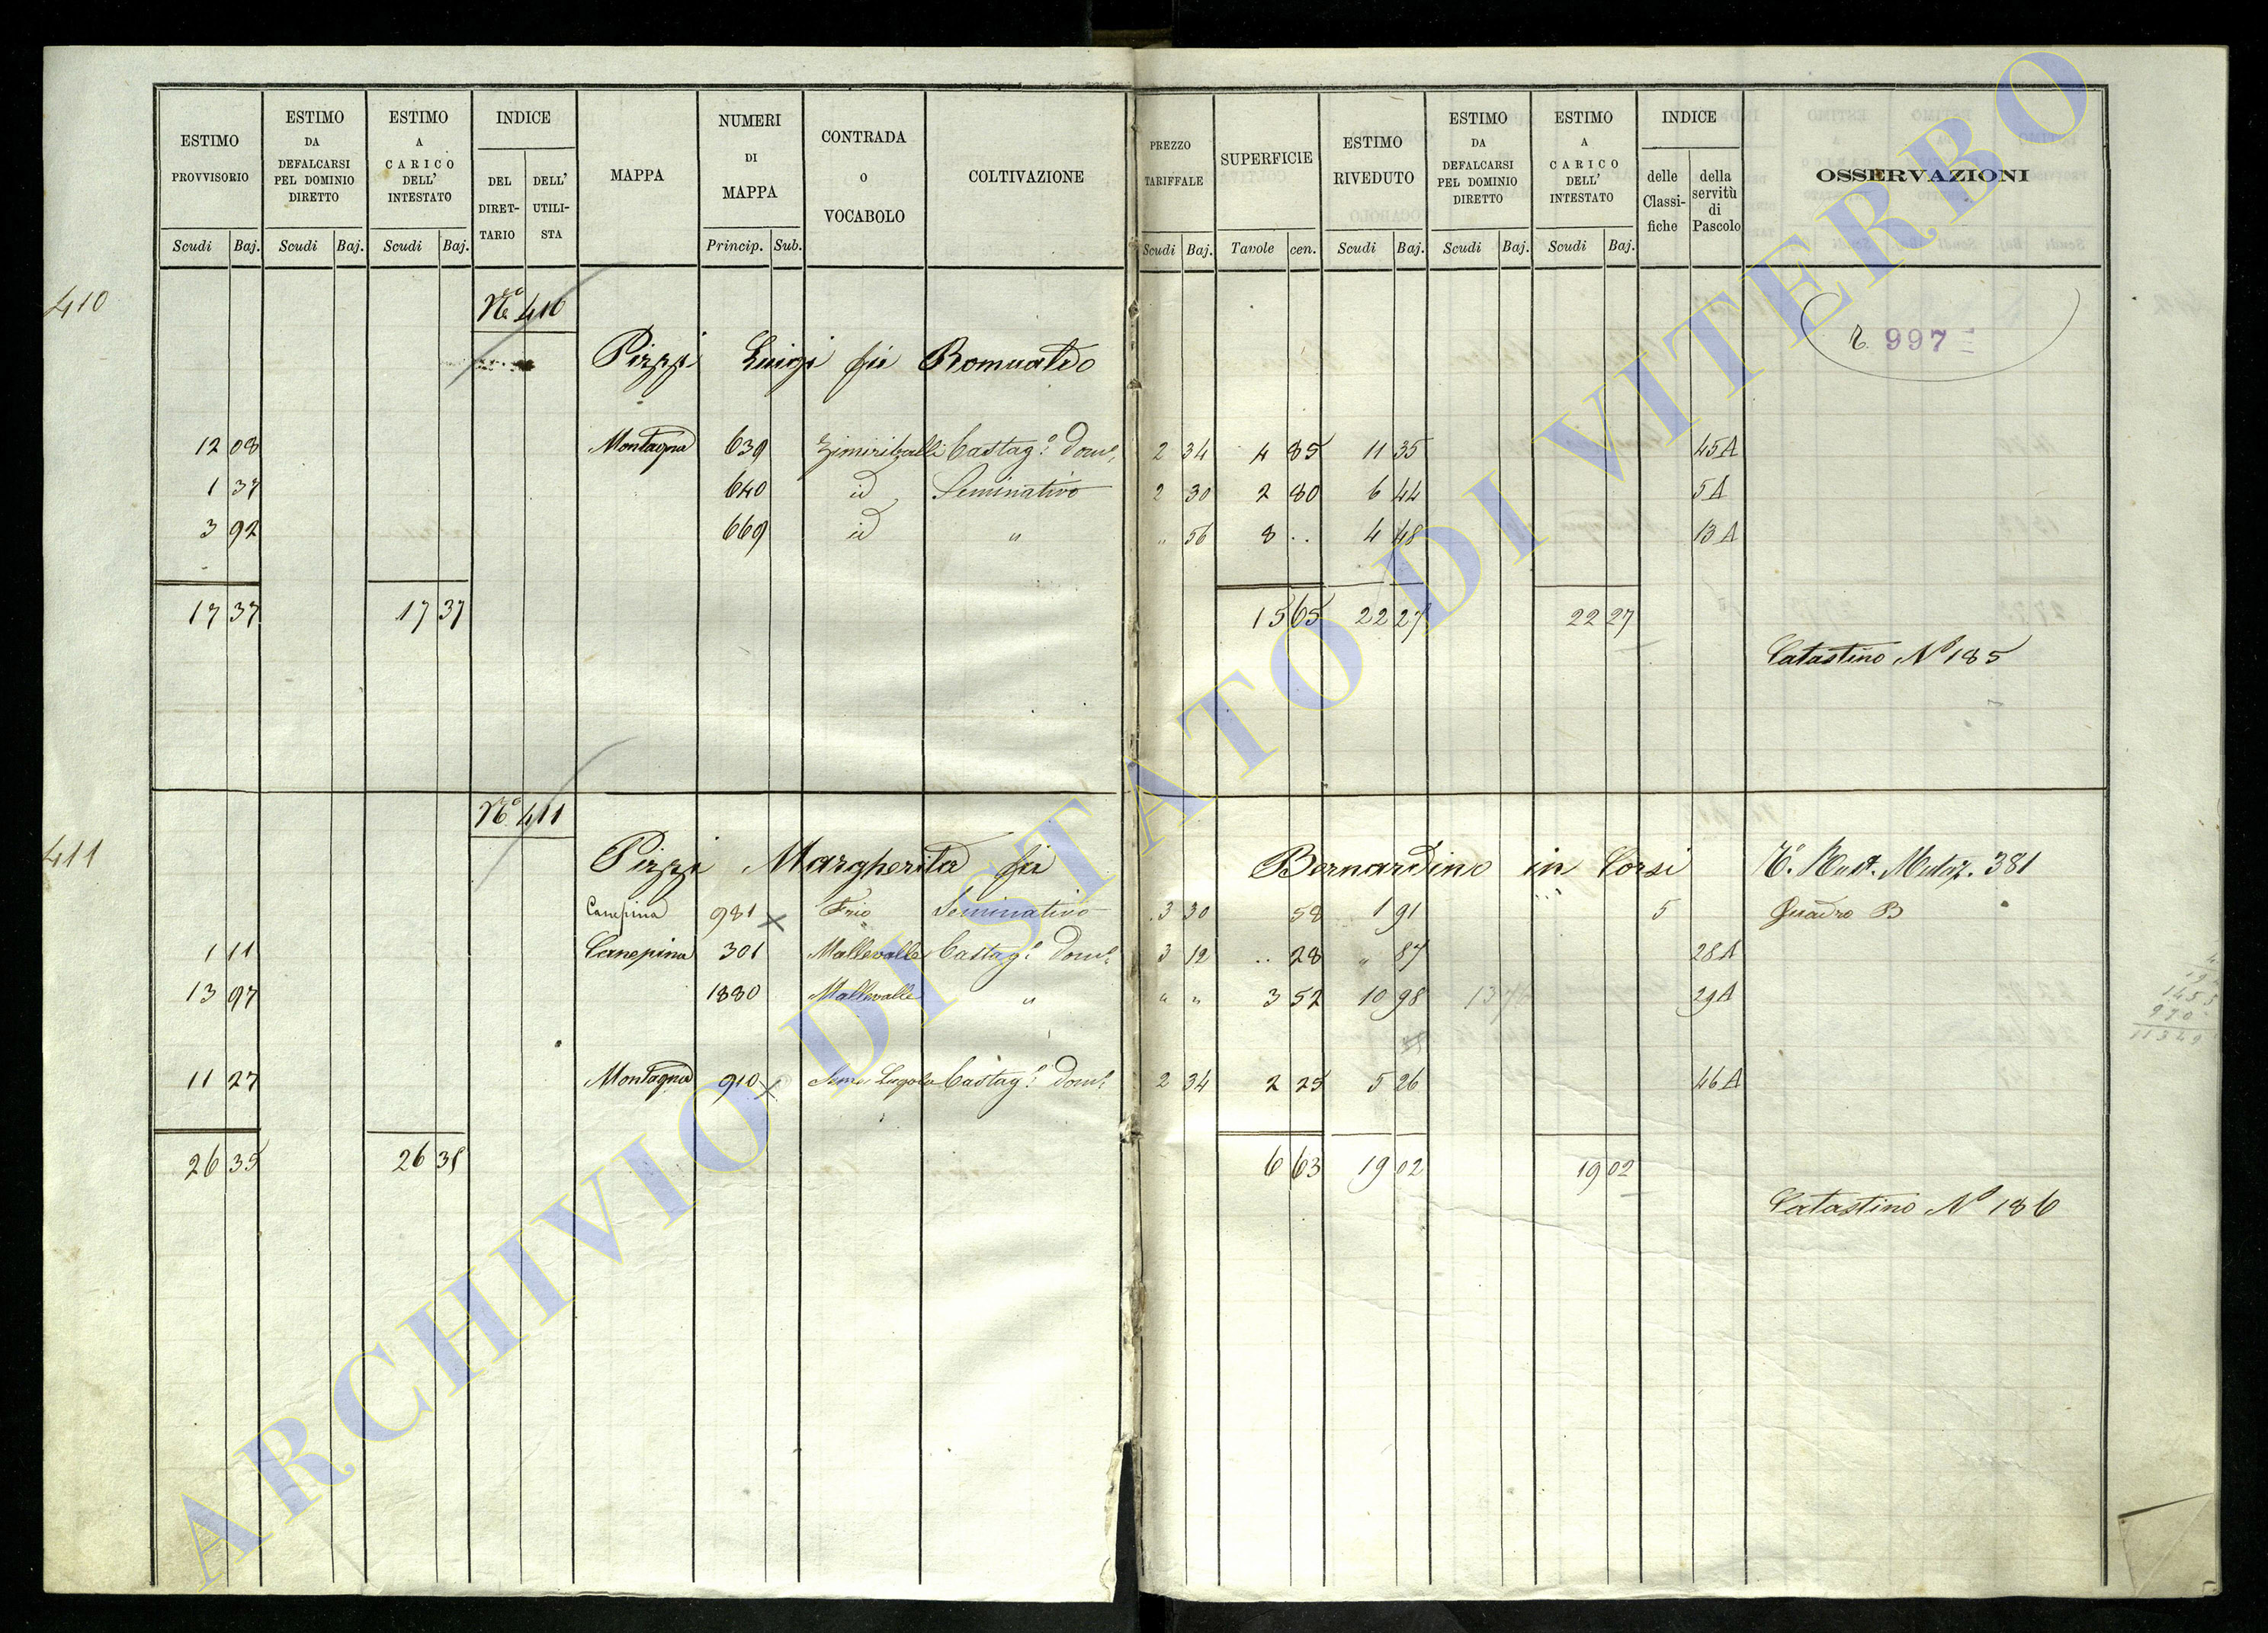 ESTIMO PROVVISORIO
ESTIMO DA DEFALCARSI PEL DOMINIO DIRETTO
ESTIMO A CARICO DELL' INTESTATO
INDICE
DEL DIRET-TARIO
DELL' UTILI-STA
MAPPA
NUMERI DI MAPPA
CONTRADA o VOCABOLO
COLTIVAZIONE
PREZZO TARIFFALE
SUPERFICIE
ESTIMO RIVEDUTO
ESTIMO DA DEFALCARSI PEL DOMINIO DIRETTO
ESTIMO A CARICO DELL' INTESTATO
INDICE
delle Classi-fiche
della servitù di Pascolo
OSSERVAZIONI
Scudi Baj. Scudi Baj. Scudi Baj. Princip. Sub. Scudi Baj. Tavole cen. Scudi Baj. Scudi Baj. Scudi Baj.
410
N.° 410
997
Pizzi Luigi fu Romualdo
12 08 Montagna 639 Castag.° Dom.° 2 34 4 85 11 35 45A
1 37 640 id Seminativo 2 30 2 80 6 44 5A
3 92 669 id " " 56 8 .. 4 48 13A
17 37 17 37 15 65 22 27 22 27
Catastino N° 185
N.° 411
411
Pizzi Margherita fu Bernardino in Corsi 381
Canepina 981 x Frio Seminativo 3 30 58 1 91 5 Quadro B
1 11 Canepina 301 Mallevalle Castag.° Dom.° 3 12 .. 28 " 87 28A
13 97 1880 Mallevalle " " " 3 52 10 98 29A
11 27 Montagna 910 x Castag.° Dom.° 2 34 2 25 5 26 46A
26 35 26 35 6 63 19 02 19 02
Catastino N° 186
ARCHIVIO DI STATO DI VITERBO